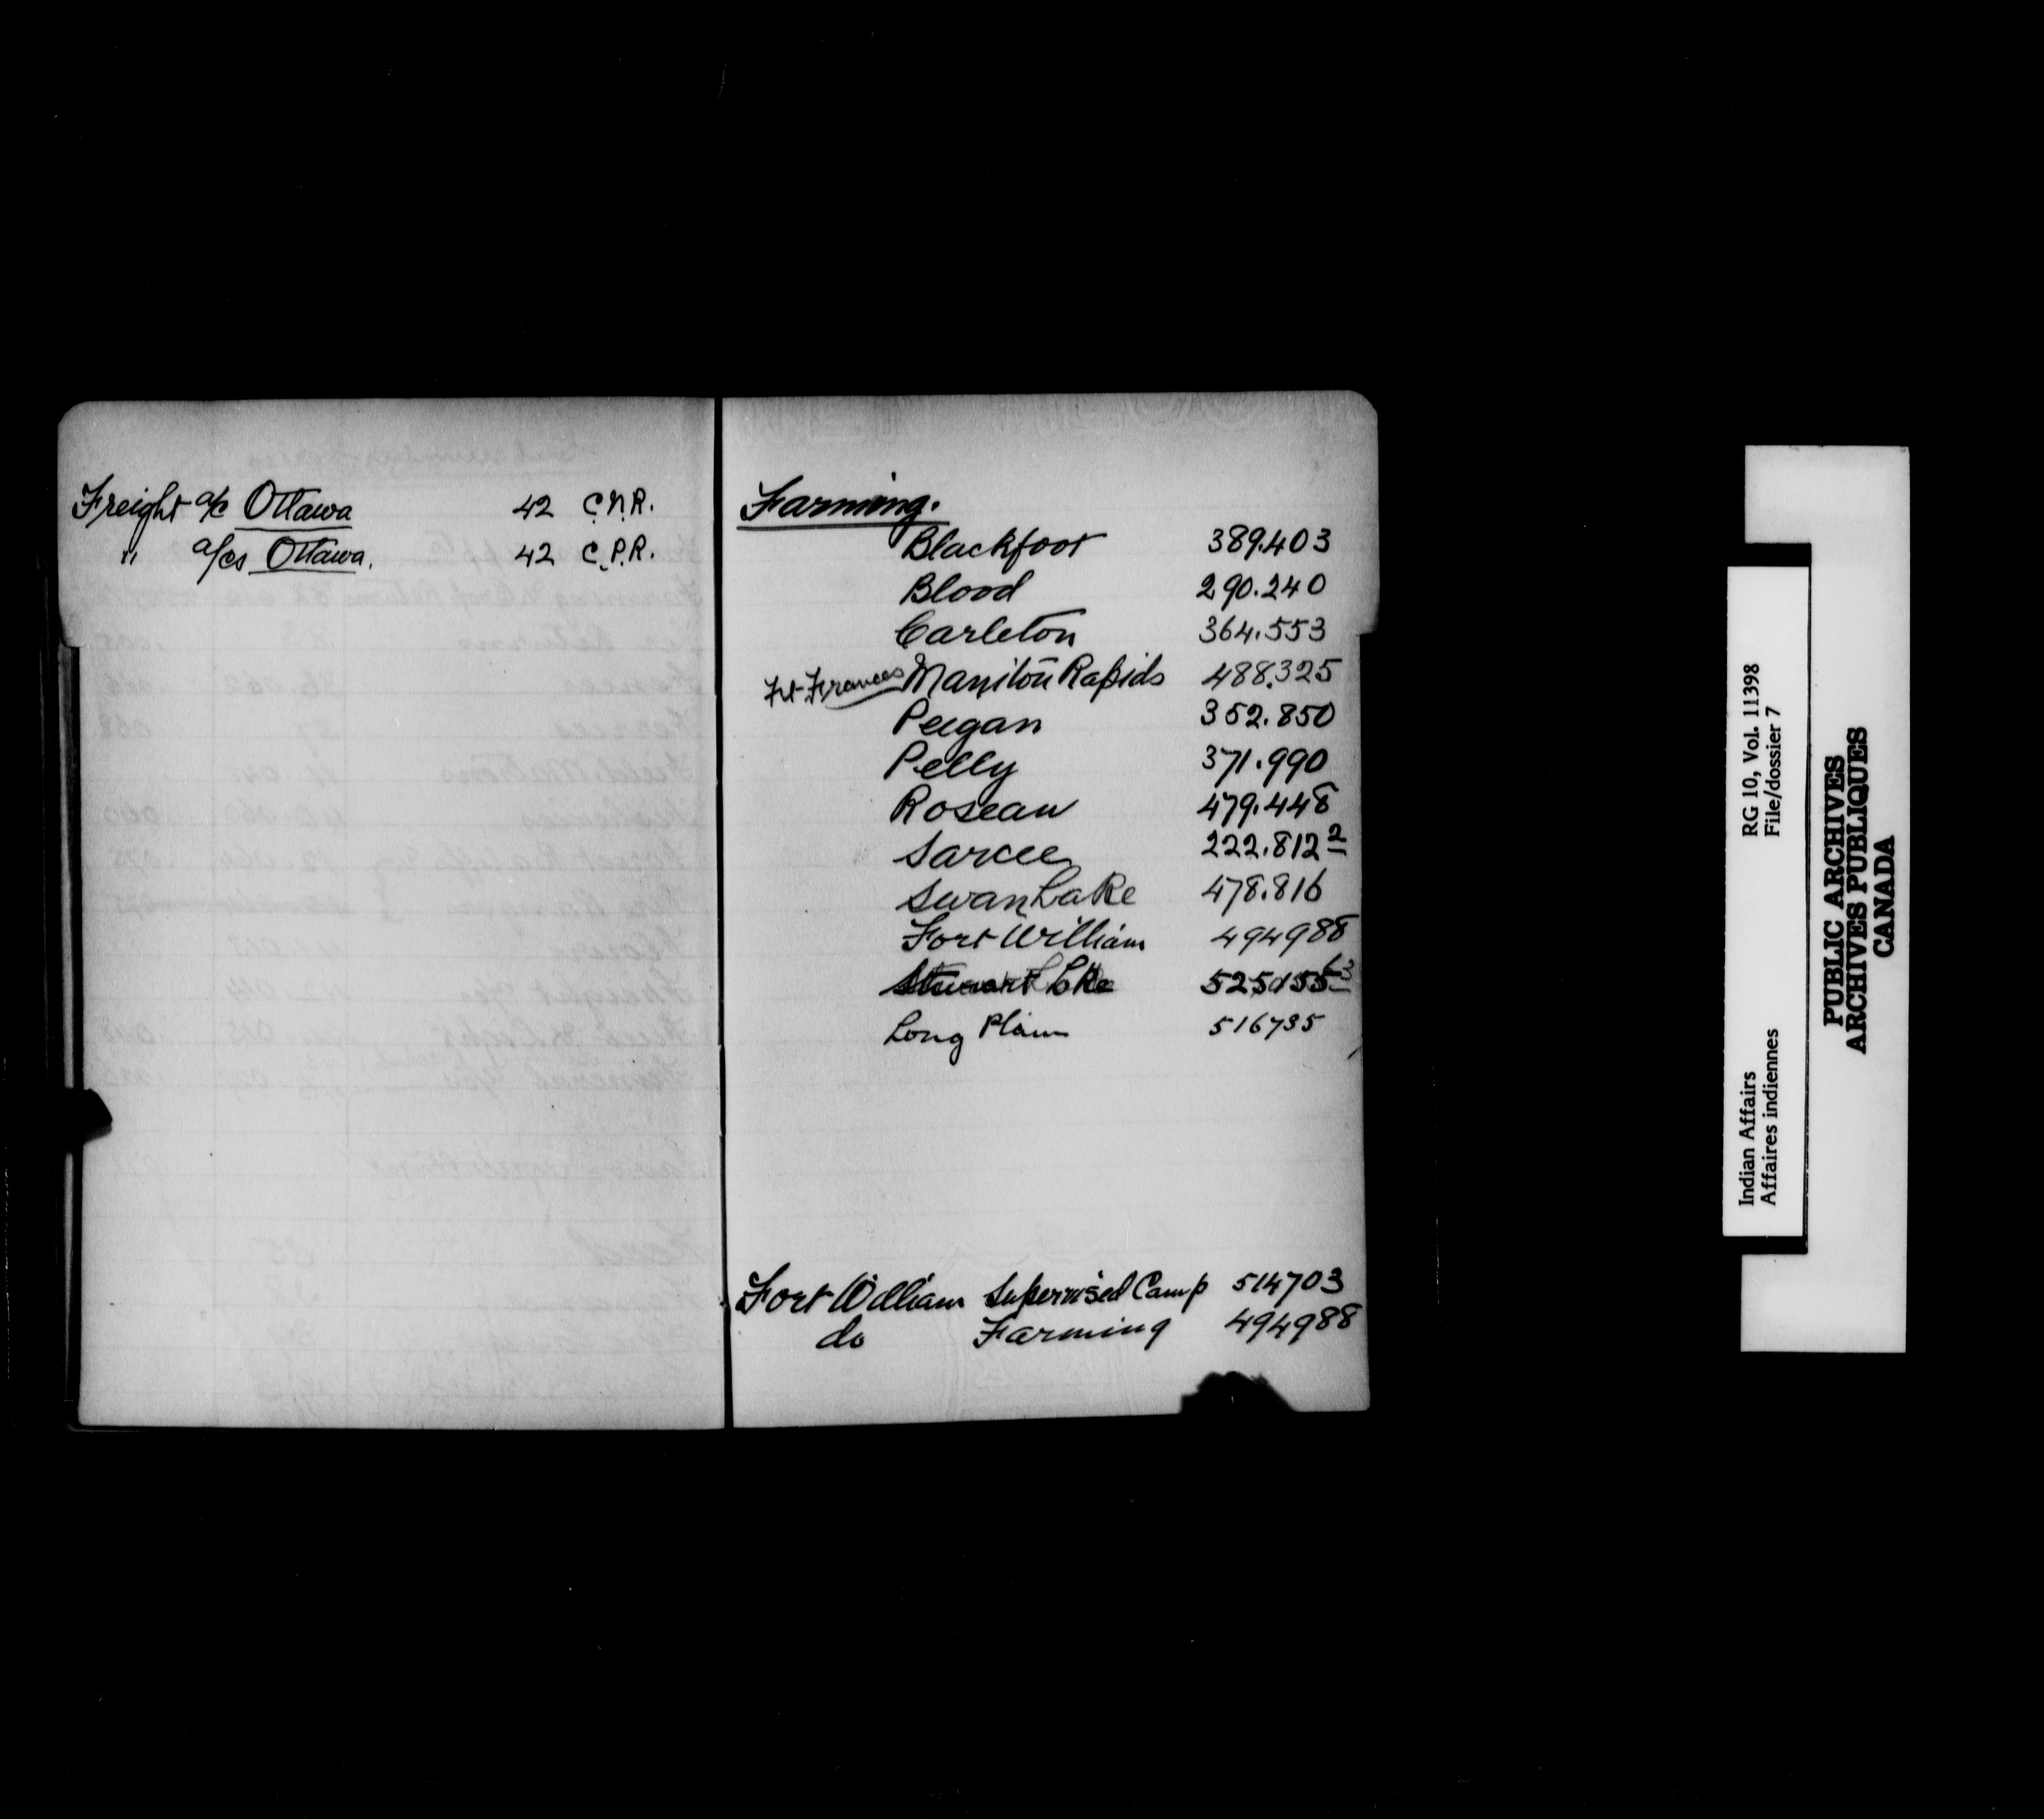 Freight a/c Ottawa 42 C.N.R.
" a/cs Ottawa. 42 C.P.R.
Farming.
Blackfoot 389.403
Blood 290.240
Carleton 364.553
Ft. Frances Manitou Rapids 488.325
Peigan 352.850
Pelly 371.990
Roseau 479.448
Sarcee 222.812 2
Swan Lake 478.816
Fort William 494988
Stuart Lke
Long Plain 516735
Fort William Supervised Camp 514703
do Farming 494988
Indian Affairs RG 10, Vol. 11398
Affaires indiennes File/dossier 7
PUBLIC ARCHIVES
ARCHIVES PUBLIQUES
CANADA